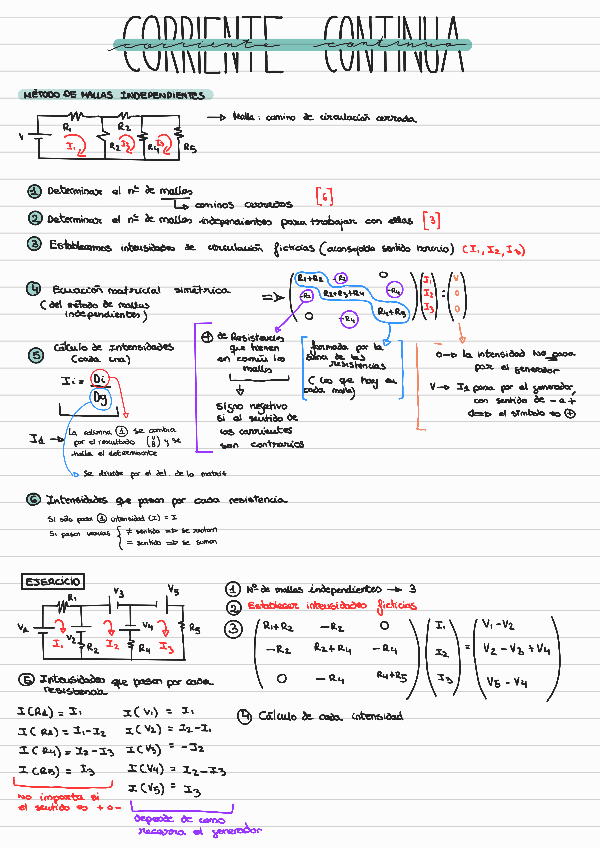 CORRIENTE CONTINUA
corriente continua
MÉTODO DE MALLAS INDEPENDIENTES
V R1 R2 R2 R4 R5
I1 I2 I3
→ Malla: camino de circulación cerrada
1 Determinar el nº de mallas [6]
↳ caminos cerrados
2 Determinar el nº de mallas independientes para trabajar con ellas [3]
3 Establecemos intensidades de circulación ficticias (aconsejable sentido horario) (I1, I2, I3)
4 Ecuación matricial simétrica
(del método de mallas
independientes)
=>
R1+R2 -R2 0 I1 V
-R2 R2+R3+R4 -R4 I2 = 0
0 -R4 R4+R5 I3 0
+ de Resistencias
que tienen
en común las
mallas
↓
Signo negativo
si el sentido de
las corrientes
son contrarios
formada por la
suma de las
resistencias
(las que hay en
cada malla)
0 → la intensidad no pasa
por el generador
V → I1 pasa por el generador,
con sentido de - a +,
=> el símbolo es +
5 Cálculo de intensidades
(cada una)
Ii = Di
Dg
I1 → La columna 1 se cambia
por el resultado (V 0 0) y se
halla el determinante
→ Se divide por el det. de la matriz
6 Intensidades que pasan por cada resistencia
Si sólo pasa 1 intensidad (I) = I
Si pasan varias { ≠ sentido => se restan
= sentido => se suman
EJERCICIO
R1 V3 V5
V1 V2 R2 V4 R4 R5
I1 I2 I3
1 Nº de mallas independientes → 3
2 Establecer intensidades ficticias
3
R1+R2 -R2 0 I1 V1-V2
-R2 R2+R4 -R4 I2 = V2-V3+V4
0 -R4 R4+R5 I3 V5-V4
4 Cálculo de cada intensidad
5 Intensidades que pasan por cada
resistencia
I(R1) = I1 I(V1) = I1
I(R2) = I1-I2 I(V2) = I2-I1
I(R4) = I2-I3 I(V3) = -I2
I(R5) = I3 I(V4) = I2-I3
I(V5) = I3
no importa si
el sentido es + o -
depende de como
recorra el generador